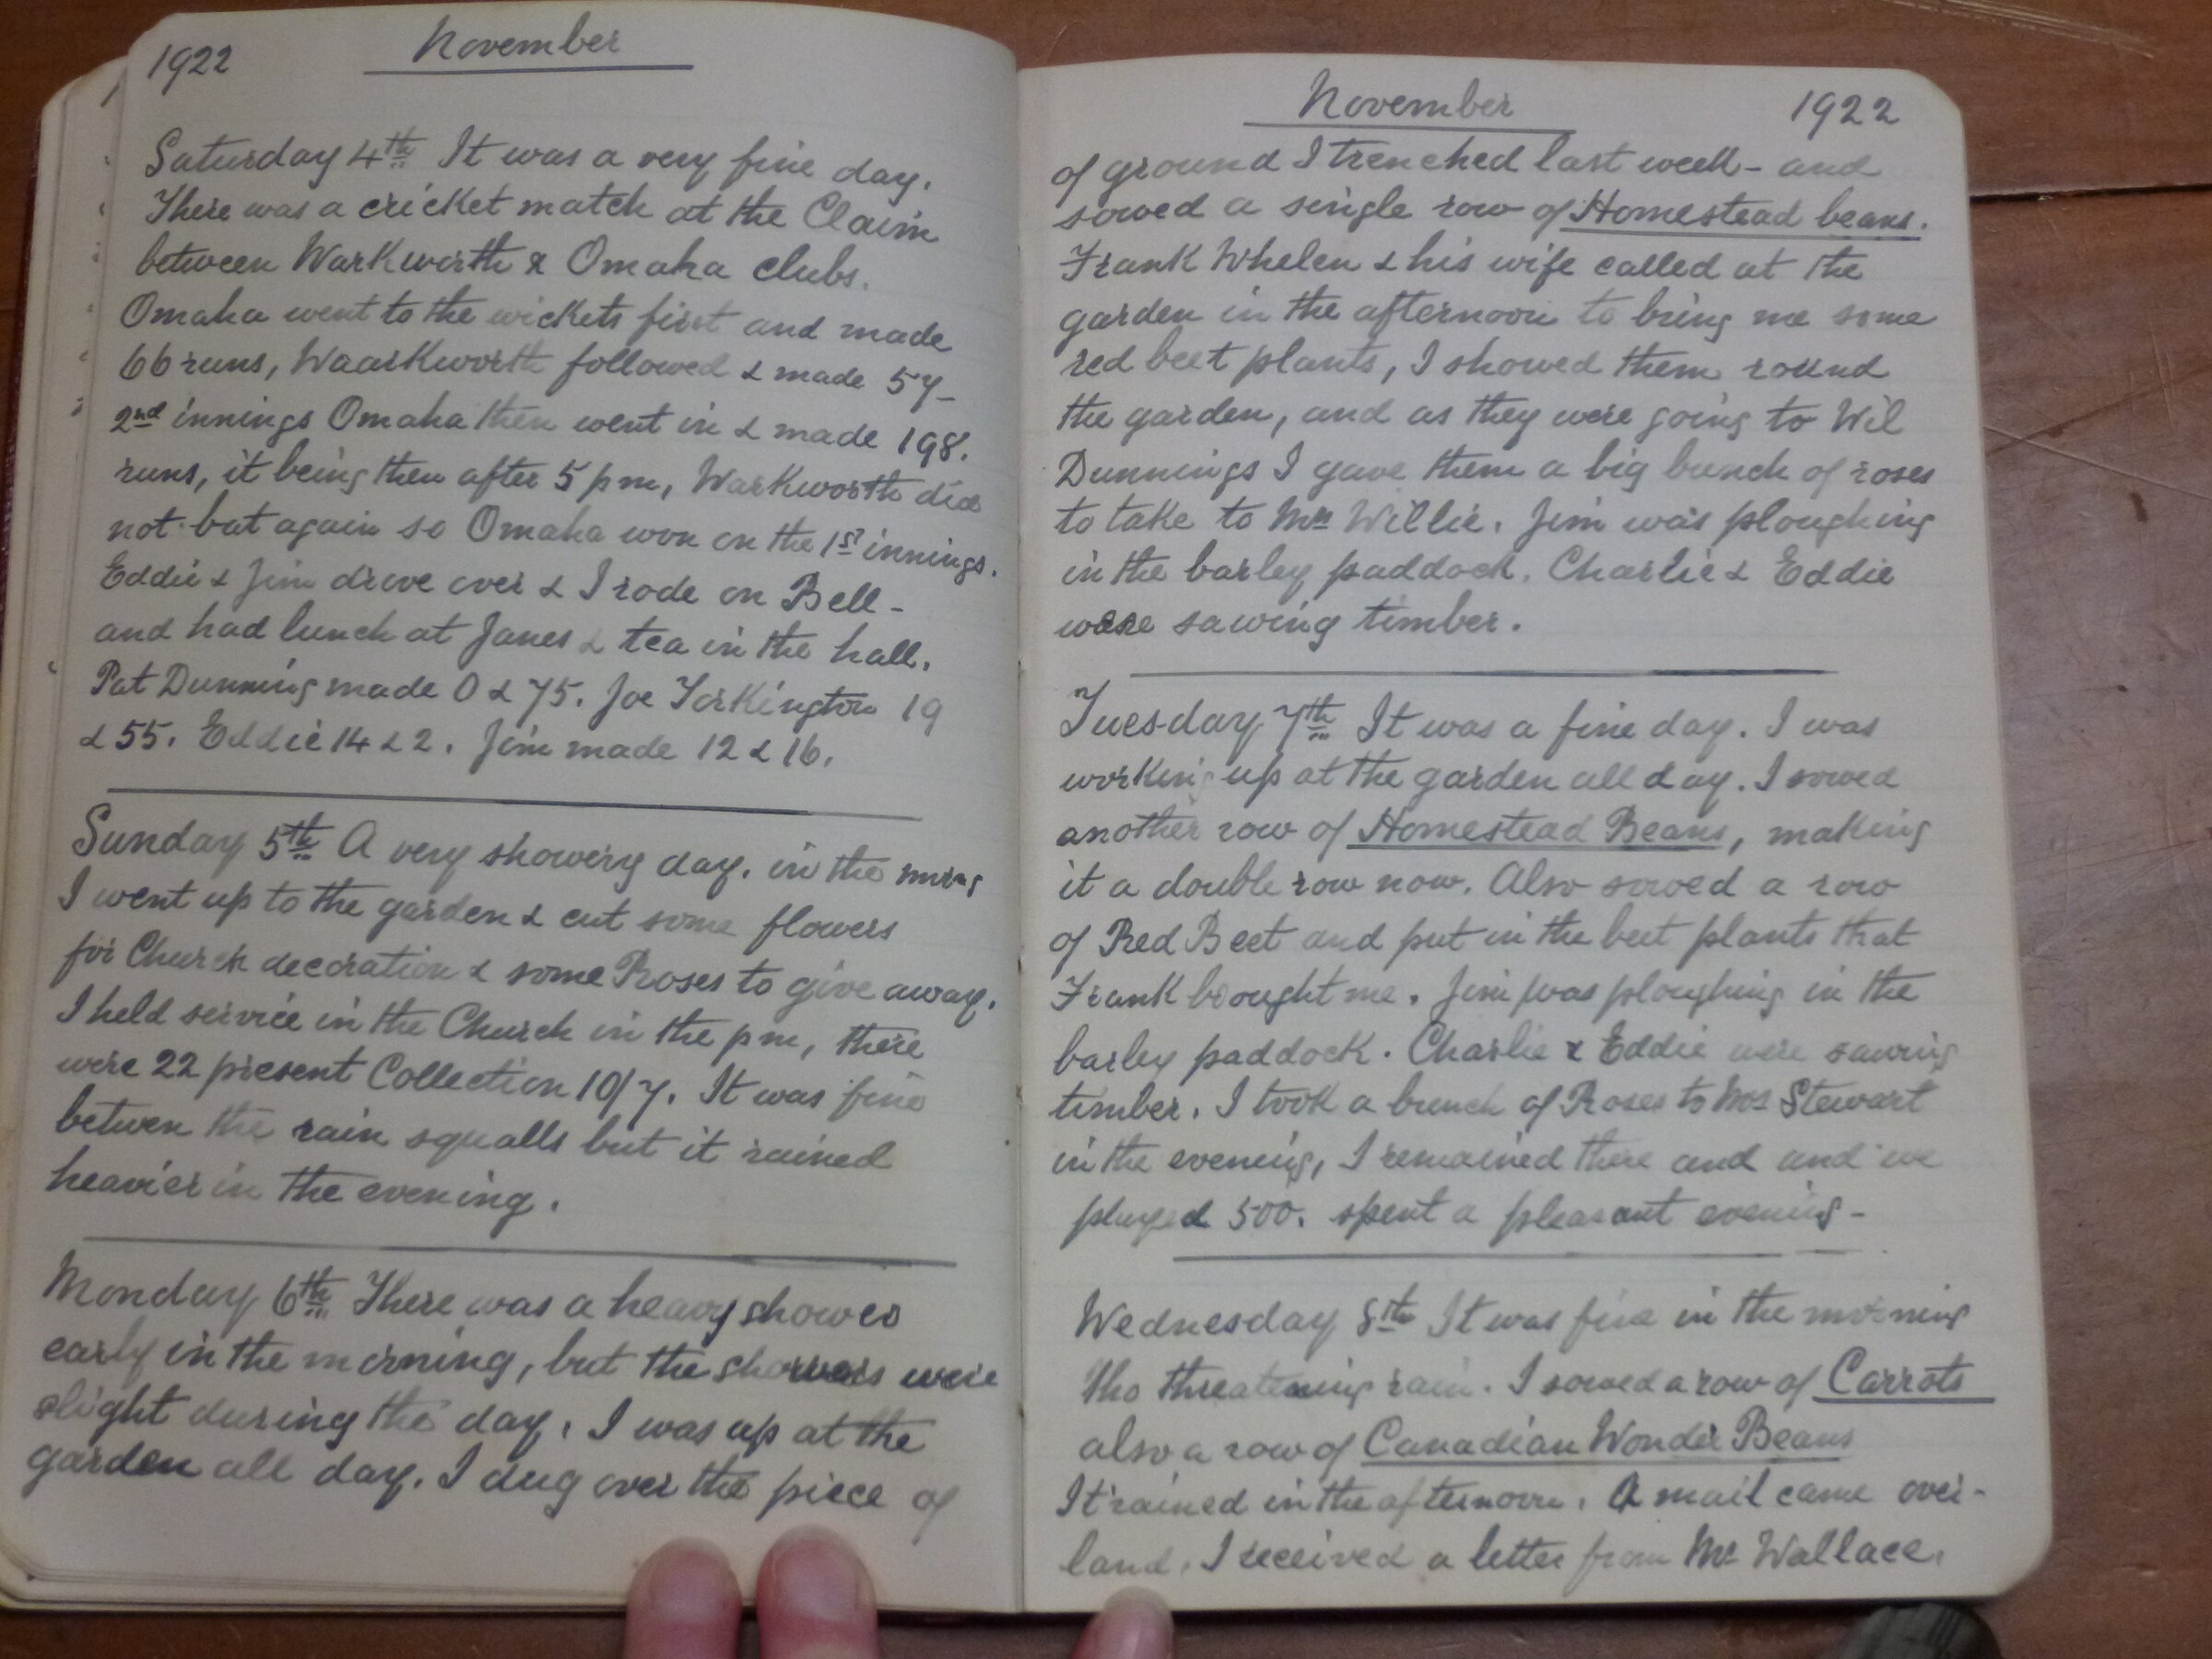 1922 November
Saturday 4th It was a very fine day.
There was a cricket match at the Claim
between Warkworth & Omaha clubs.
Omaha went to the wickets first and made
66 runs, Waarkworth followed & made 57-
2nd innings Omaha then went in & made 198.
runs, it being then after 5 pm, Warkworth did
not bat again so Omaha won on the 1st innings.
Eddie & Jim drove over & I rode on Bell-
and had lunch at Janes & tea in the hall.
Pat Dunning made 0 & 75. Joe Torkington 19
& 55. Eddie 14 & 2. Jim made 12 & 16.
Sunday 5th A very showery day. in the mrng
I went up to the garden & cut some flowers
for Church decoration & some Roses to give away.
I held service in the Church in the pm, there
were 22 present Collection 10/7. It was fine
betwen the rain squalls but it rained
heavier in the evening.
Monday 6th There was a heavy shower
early in the morning, but the showers were
slight during the day. I was up at the
garden all day. I dug over the piece of
November 1922
of ground I trenched last week - and
sowed a single row of Homestead beans.
Frank Whelen & his wife called at the
garden in the afternoon to bring me some
red beet plants, I showed them round
the garden, and as they were going to Wil
Dunnings I gave them a big bunch of roses
to take to Mrs Willie. Jim was ploughing
in the barley paddock. Charlie & Eddie
were sawing timber.
Tuesday 7th It was a fine day. I was
working up at the garden all day. I sowed
another row of Homestead Beans, making
it a double row now. Also sowed a row
of Red Beet and put in the beet plants that
Frank brought me. Jim was ploughing in the
barley paddock. Charlie & Eddie were sawing
timber. I took a bunch of Roses to Mrs Stewart
in the evening, I remained there and and we
played 500. spent a pleasant evening-
Wednesday 8th It was fine in the morning
tho threatening rain. I sowed a row of Carrots
also a row of Canadian Wonder Beans
It rained in the afternoon. A mail came over-
land. I received a letter from Mr Wallace.